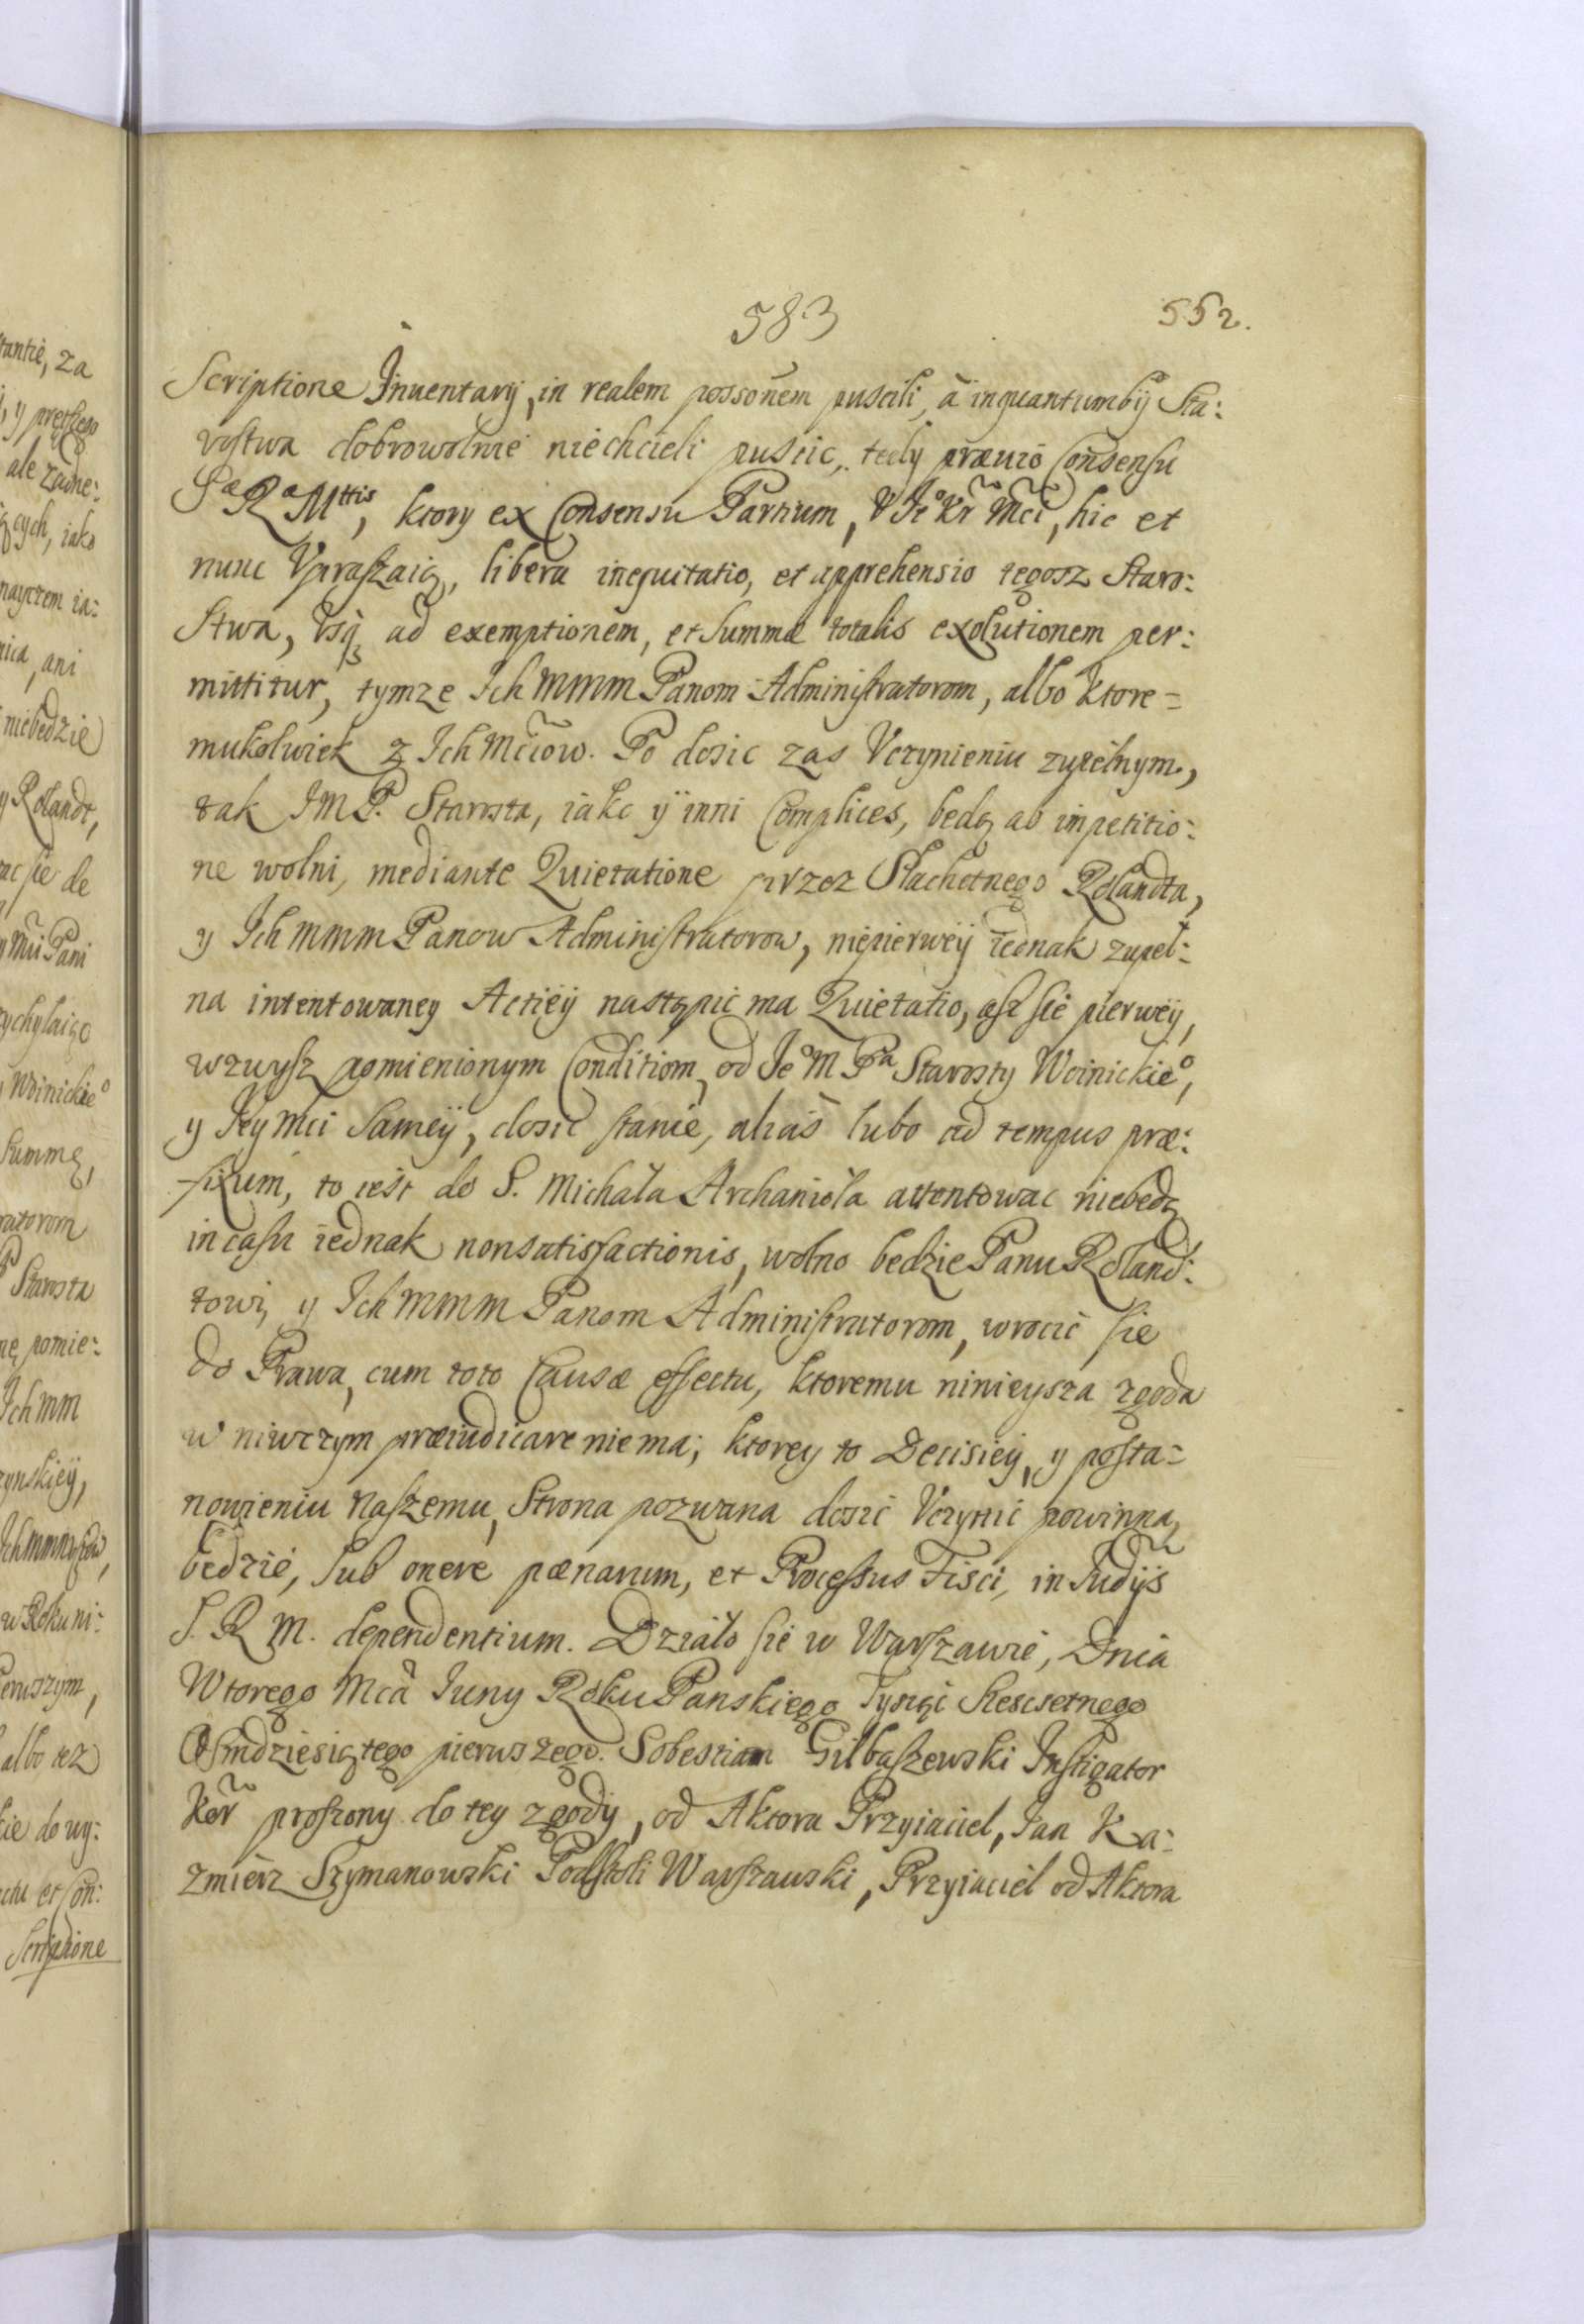 583
552.
Scriptione Inuentarÿ, in realem possonẽm puscili, à inquantumbÿ Sta:
rostwa dobrowolnie niechcieli puscic, tedy præuio Consensu
Sæ Ræ Mttis, ktory ex Consensu Partium, V Je° Kr̃ Mci, hic et
nunc Vpraszaią, libera inequitatio, et apprehensio tegosz Staro:
Stwa, usq₃ ad exemptionem, et Summæ totalis exolutionem per:
mittitur, tymze Ich MMM Panom Administratorom, albo ktore=
mukolwiek z Ich Mciow. Po dosic zas Vczynieniu zupełnym,
tak IMP. Starosta, iako ÿ inni Complices, bedą ab inpetitio:
ne wolni, mediante Quietatione przez Slachetnego Rolandta,
y Ich MMM Panow Administratorow, niepierweÿ iednak zupeł:
na intentowaney Actieÿ nastąpic ma Quietatio, asz sie pierweÿ,
wzwysz pomienionym Conditiom, od Je° M Pa Starosty Woinickie°,
y Jey Mci Sameÿ, dosic stanie, alias lubo ad tempus præ:
fixum, to iest do S. Michała Archanioła attentowac niebedą
in casu iednak nonsatisfactionis, wolno bedzie Panu Roland:
towi, y Ich MMM Panom Administratorom, wrocic sie
do Prawa, cum toto Causæ effectu, ktoremu ninieysza zgoda
w niwczym præiudicare nie ma; ktorey to Decisieÿ, y posta=
nowieniu naszemu, Strona pozwana dosic Vczynic powinna
bedzie, sub onere pænarum, et Processus Fisci, in Judÿs
S. R M. dependentium. Działo sie w Warszawie, Dnia
Wtorego Mca Iuny Roku Panskiego Tysiąc Szescsetnego
Osmdziesiątego pierwszego. Sobestian Gilbaszewski Instigator
Kor̃ proszony do tey zgody, od Aktora Przyiaciel, Jan Ka:
zmierz Szymanowski Podstoli Warszawski, Przyiaciel od Aktora